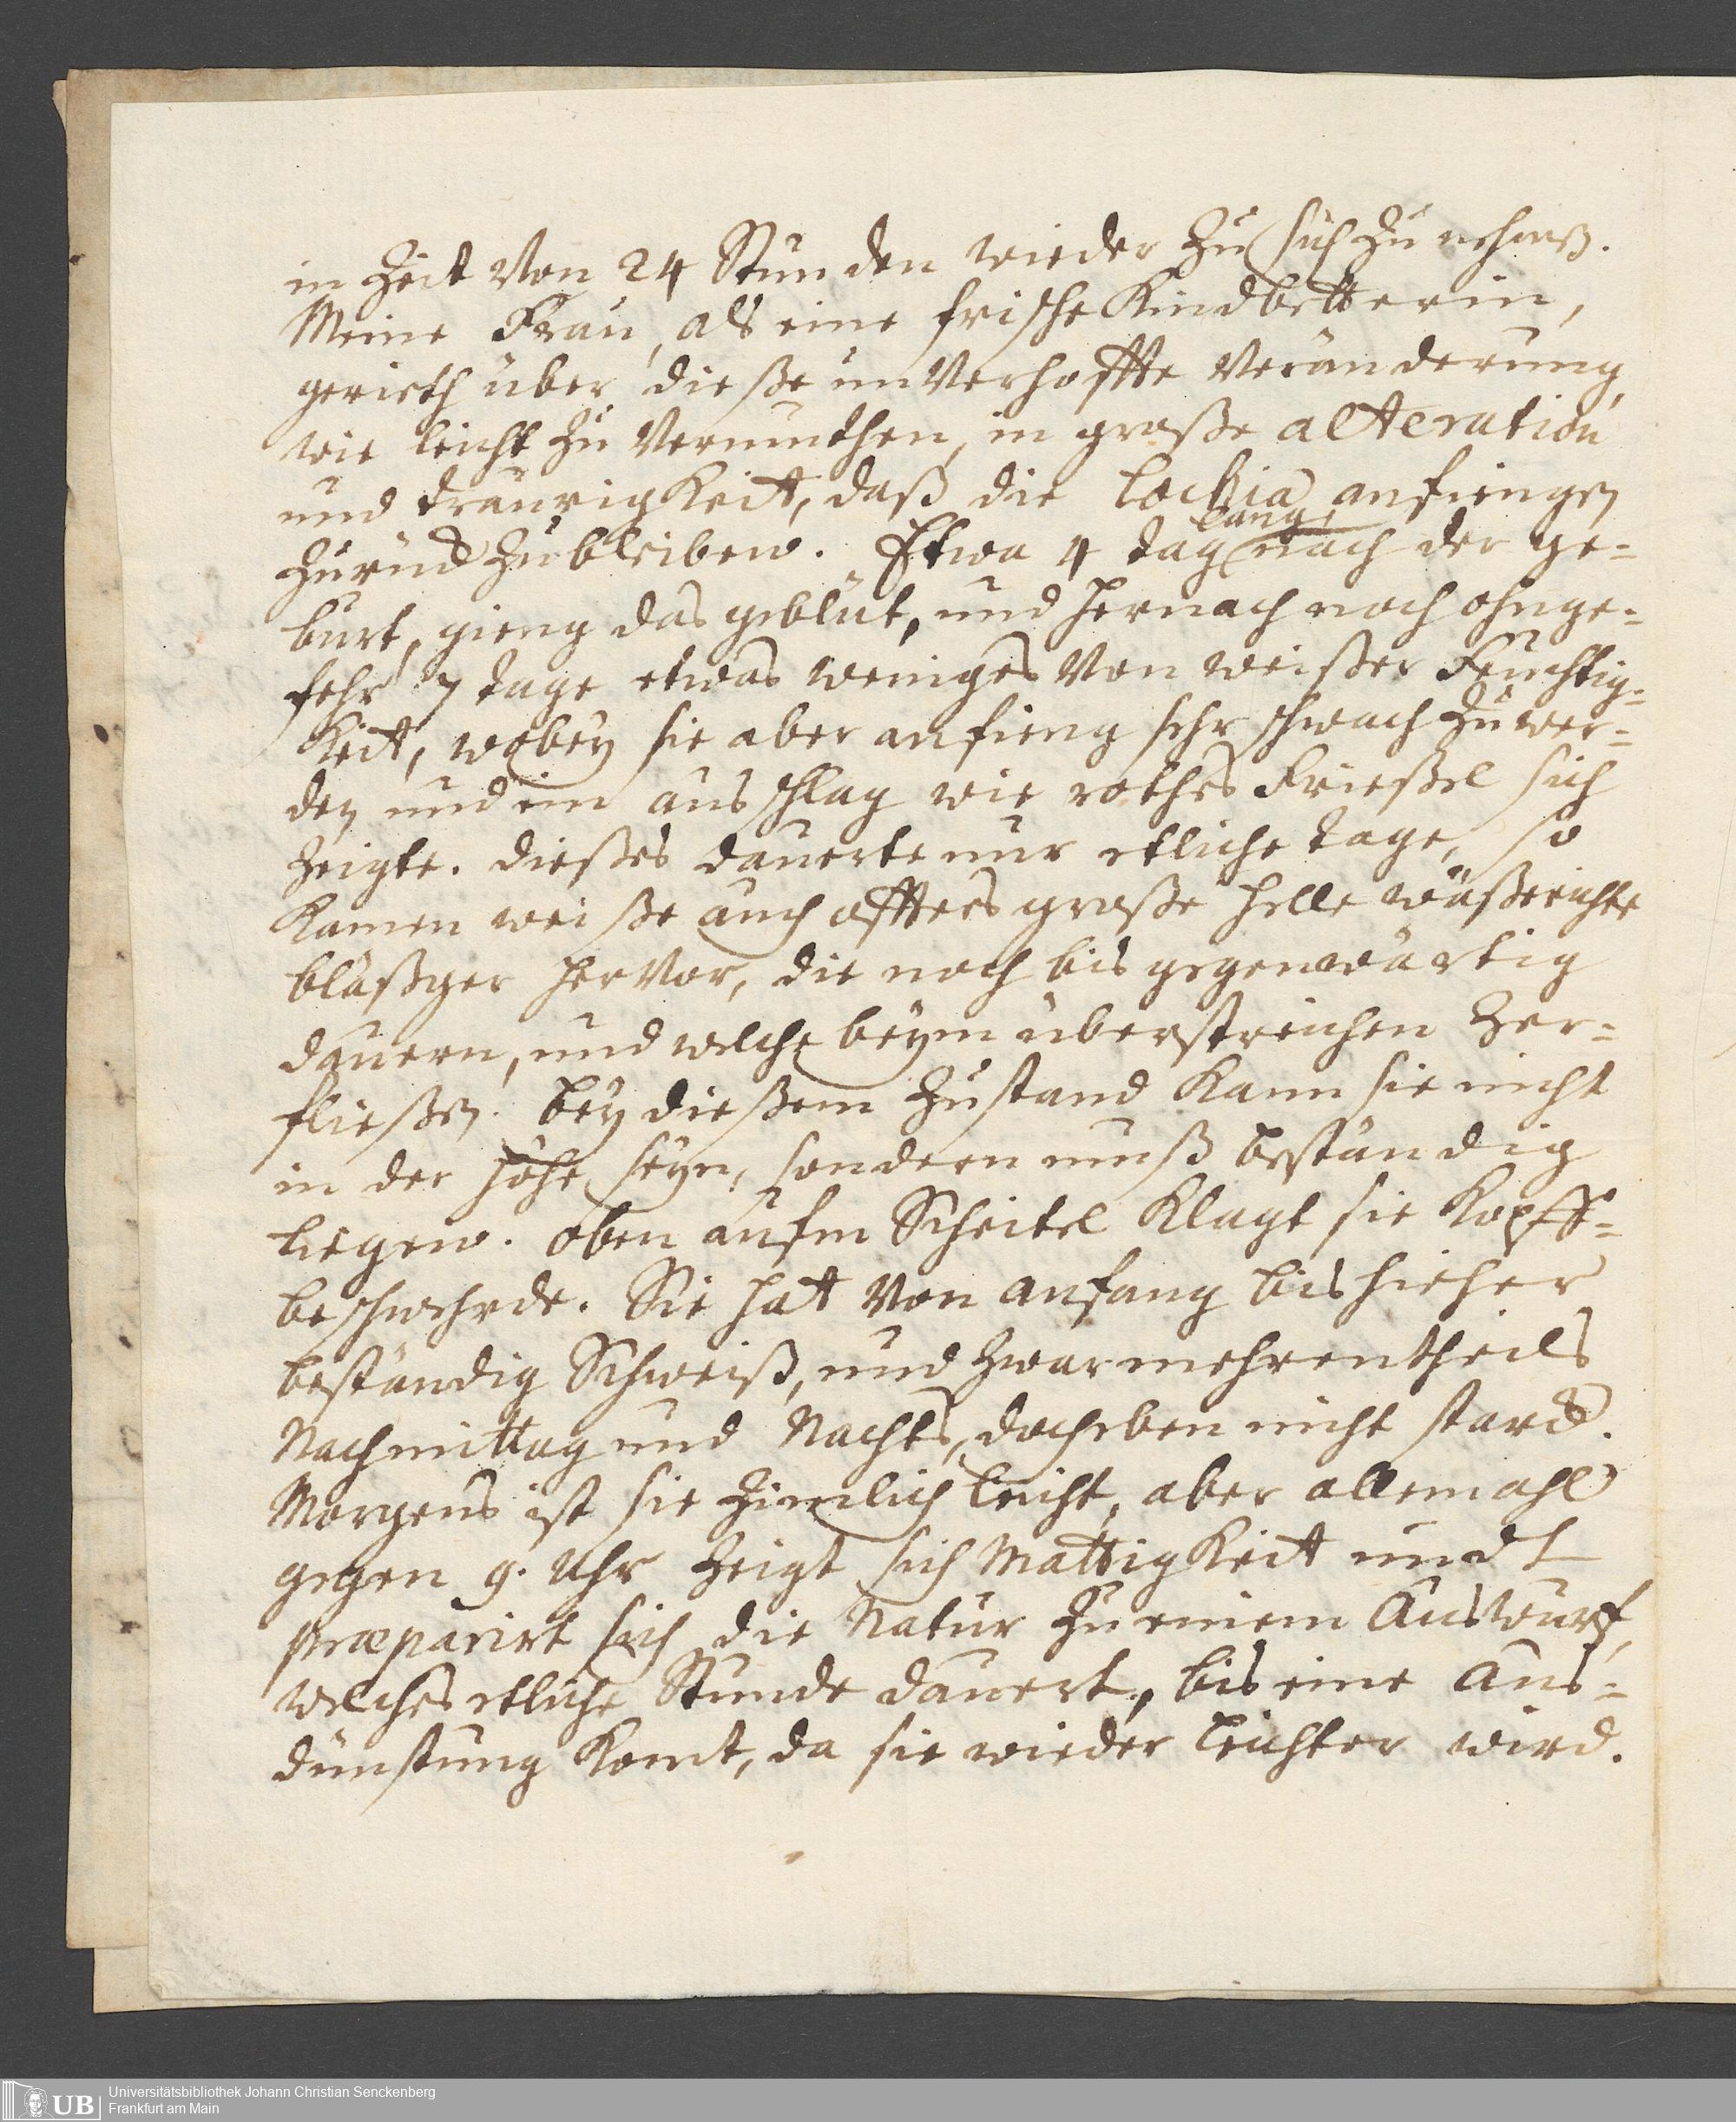 in Zeit von 24 Stunden wieder zu sich zu nehmen.
Meine Frau, als eine frische Kindbetterin,
gerieth über dieße unverhoffte Veränderung,
wie leicht zu vermuthen, in große alteration
und traurigkeit, daß die Lochia anfiengen
zurück zubleiben. Etwa 4 tag lang nach der ge=
burt, gieng das geblüt, und hernach noch ohnge=
fehr 7 tage etwas weniges von weißer Feuchtig=
keit, wobey sie aber anfieng sehr schwach zu wer=
den und ein ausschlag wie rothes Frießel sich
zeigte. dießes dauerte nur etliche tage, so
kamen weiße auch öffters große helle wäßerichte
bläßger hervor, die noch bis gegenwärtig
dauern, und welche beym überstreichen zer=
fließen. bey dießem Zustand kann sie nicht
in der höhe seyn, sondern muß beständig
liegen. oben aufm Scheitel klagt sie Kopff=
beschwehrde. Sie hat von anfang bis hieher
beständig Schweiß, und zwar mehrentheils
Nachmittag und Nachts, doch eben nicht starck.
Morgens ist sie zimlich leicht, aber allemahl
gegen 9. Uhr zeigt sich Mattigkeit und
præparirt sich die Natur zu einem Auswurf,
welches etliche Stunde dauert, bis eine Aus=
dünstung komt, da sie wieder leichter wird.
UB
Universitätsbibliothek Johann Christian Senckenberg
Frankfurt am Main